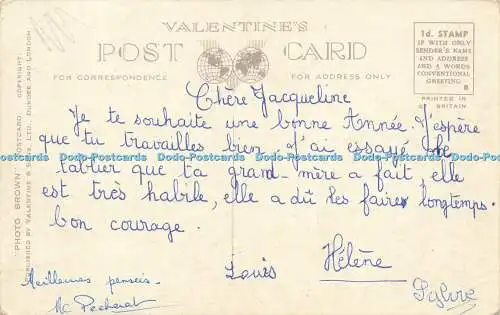 VALENTINE'S
POST CARD
FOR CORRESPONDENCE
FOR ADDRESS ONLY
1d. STAMP
IF WITH ONLY
SENDER'S NAME
AND ADDRESS
AND 5 WORDS
CONVENTIONAL
GREETING
B
PRINTED IN
GT BRITAIN
"PHOTO BROWN" POSTCARD. COPYRIGHT:
PUBLISHED BY VALENTINE & SONS, LTD., DUNDEE AND LONDON.
Chère Jacqueline
Je te souhaite une bonne Année. J'espère
que tu travailles bien. J'ai essayé le
tablier que ta grand-mère a fait, elle
est très habile, elle a dû les faire longtemps.
bon courage.
Louis Hélène
Meilleures pensées.
Dodo-Postcards Dodo-Postcards Dodo-Postcards Dodo-Postcards Dodo-Postcards